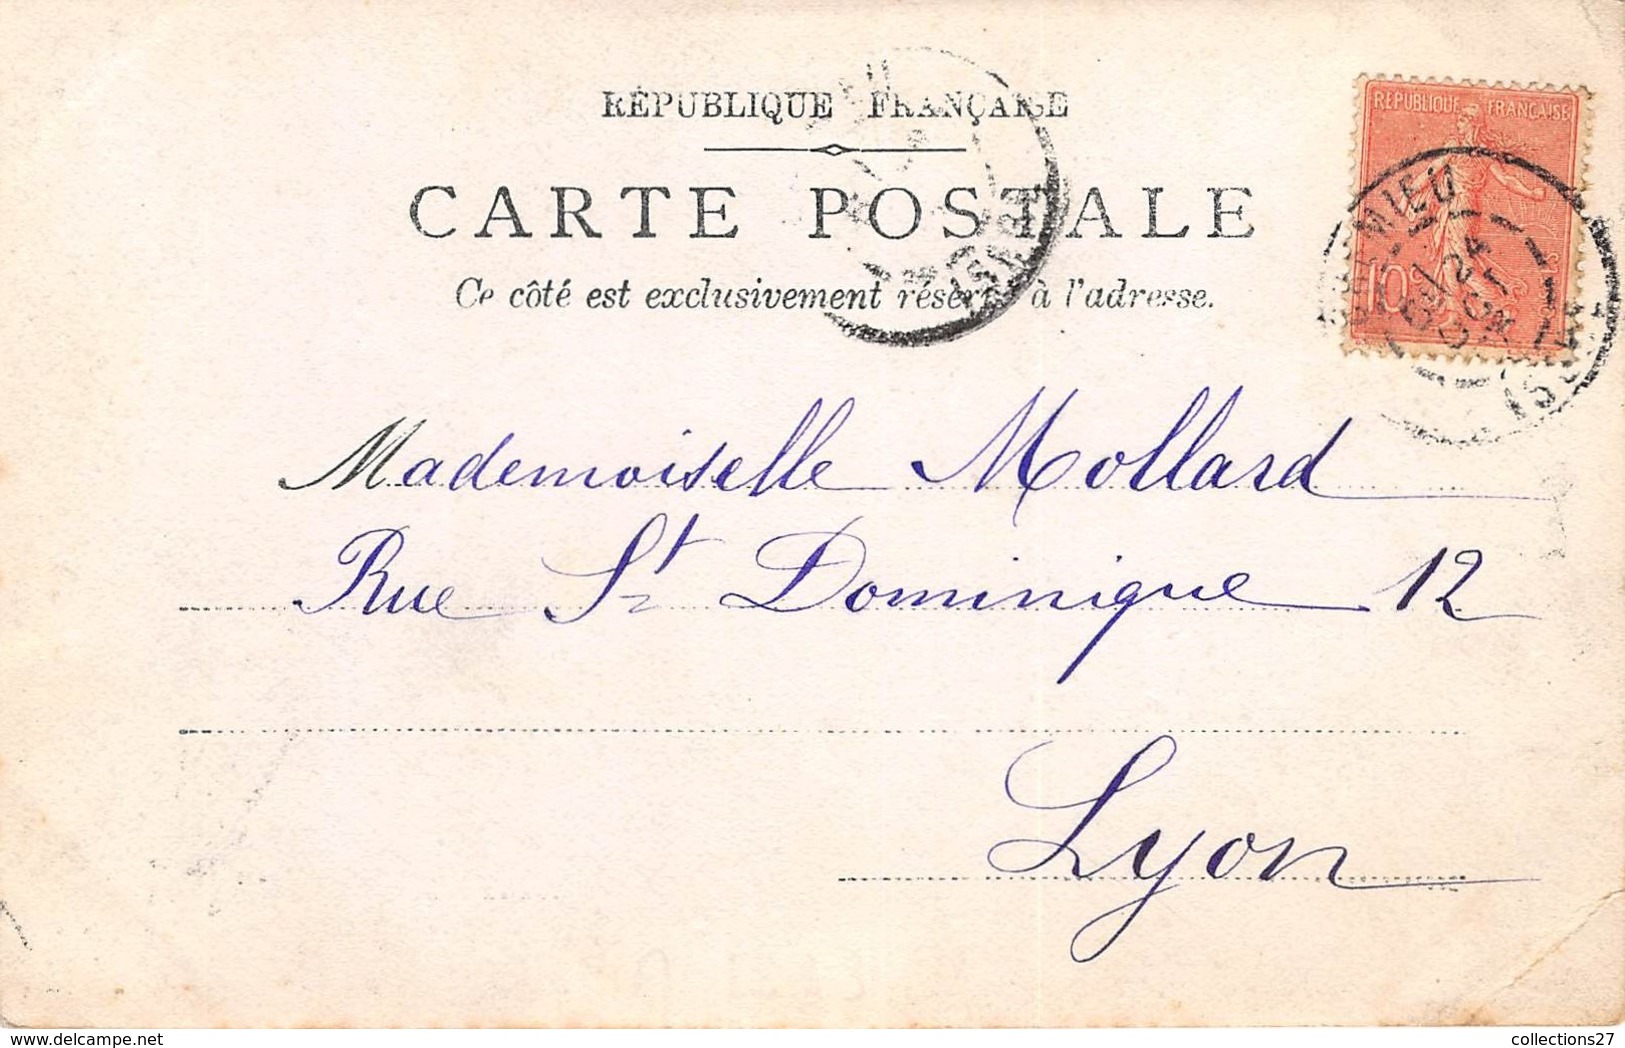 RÉPUBLIQUE FRANÇAISE
CARTE POSTALE
Ce côté est exclusivement réservé à l'adresse.
REPUBLIQUE FRANÇAISE
10
MIEU
24
OCT
ISÈRE
Mademoiselle Mollard
Rue St Dominique 12
Lyon
collections27